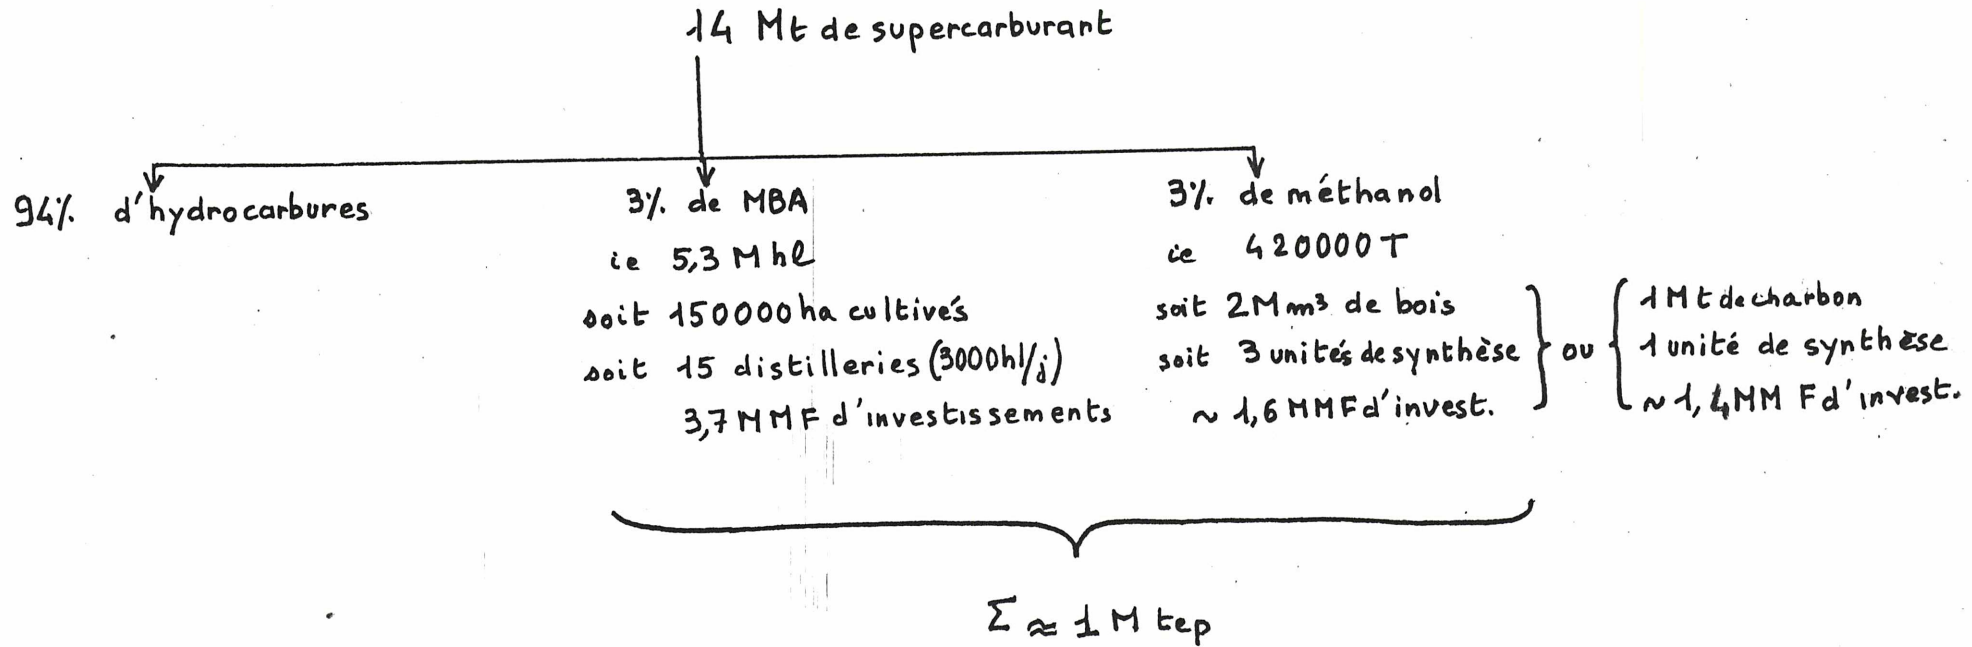 14 Mt de supercarburant
94% d'hydrocarbures
3% de MBA
ie 5,3 M hl
soit 150000 ha cultivés
soit 15 distilleries (3000hl/j)
3,7 MMF d'investissements
3% de méthanol
ie 420000 T
soit 2M m³ de bois
soit 3 unités de synthèse
~ 1,6 MMF d'invest.
ou
1 Mt de charbon
1 unité de synthèse
~ 1,4 MM F d'invest.
Σ ≈ 1 M tep